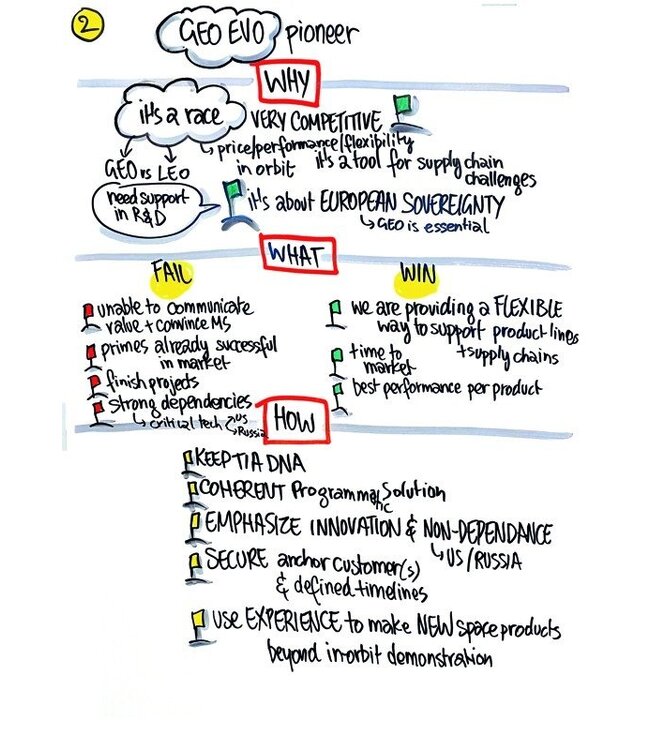 2
GEO EVO pioneer
WHY
it's a race
VERY COMPETITIVE
price/performance/flexibility
in orbit
it's a tool for supply chain
challenges
GEO vs LEO
need support
in R&D
it's about EUROPEAN SOVEREIGNTY
GEO is essential
WHAT
FAIL
unable to communicate
value + convince MS
primes already successful
in market
finish projects
strong dependencies
critical tech
US
Russia
WIN
we are providing a FLEXIBLE
way to support product lines
+ supply chains
time to
market
best performance per product
HOW
KEEP TIA DNA
COHERENT Programmatic Solution
EMPHASIZE INNOVATION & NON-DEPENDANCE
US/RUSSIA
SECURE anchor customer(s)
& defined timelines
use EXPERIENCE to make NEW space products
beyond in-orbit demonstration